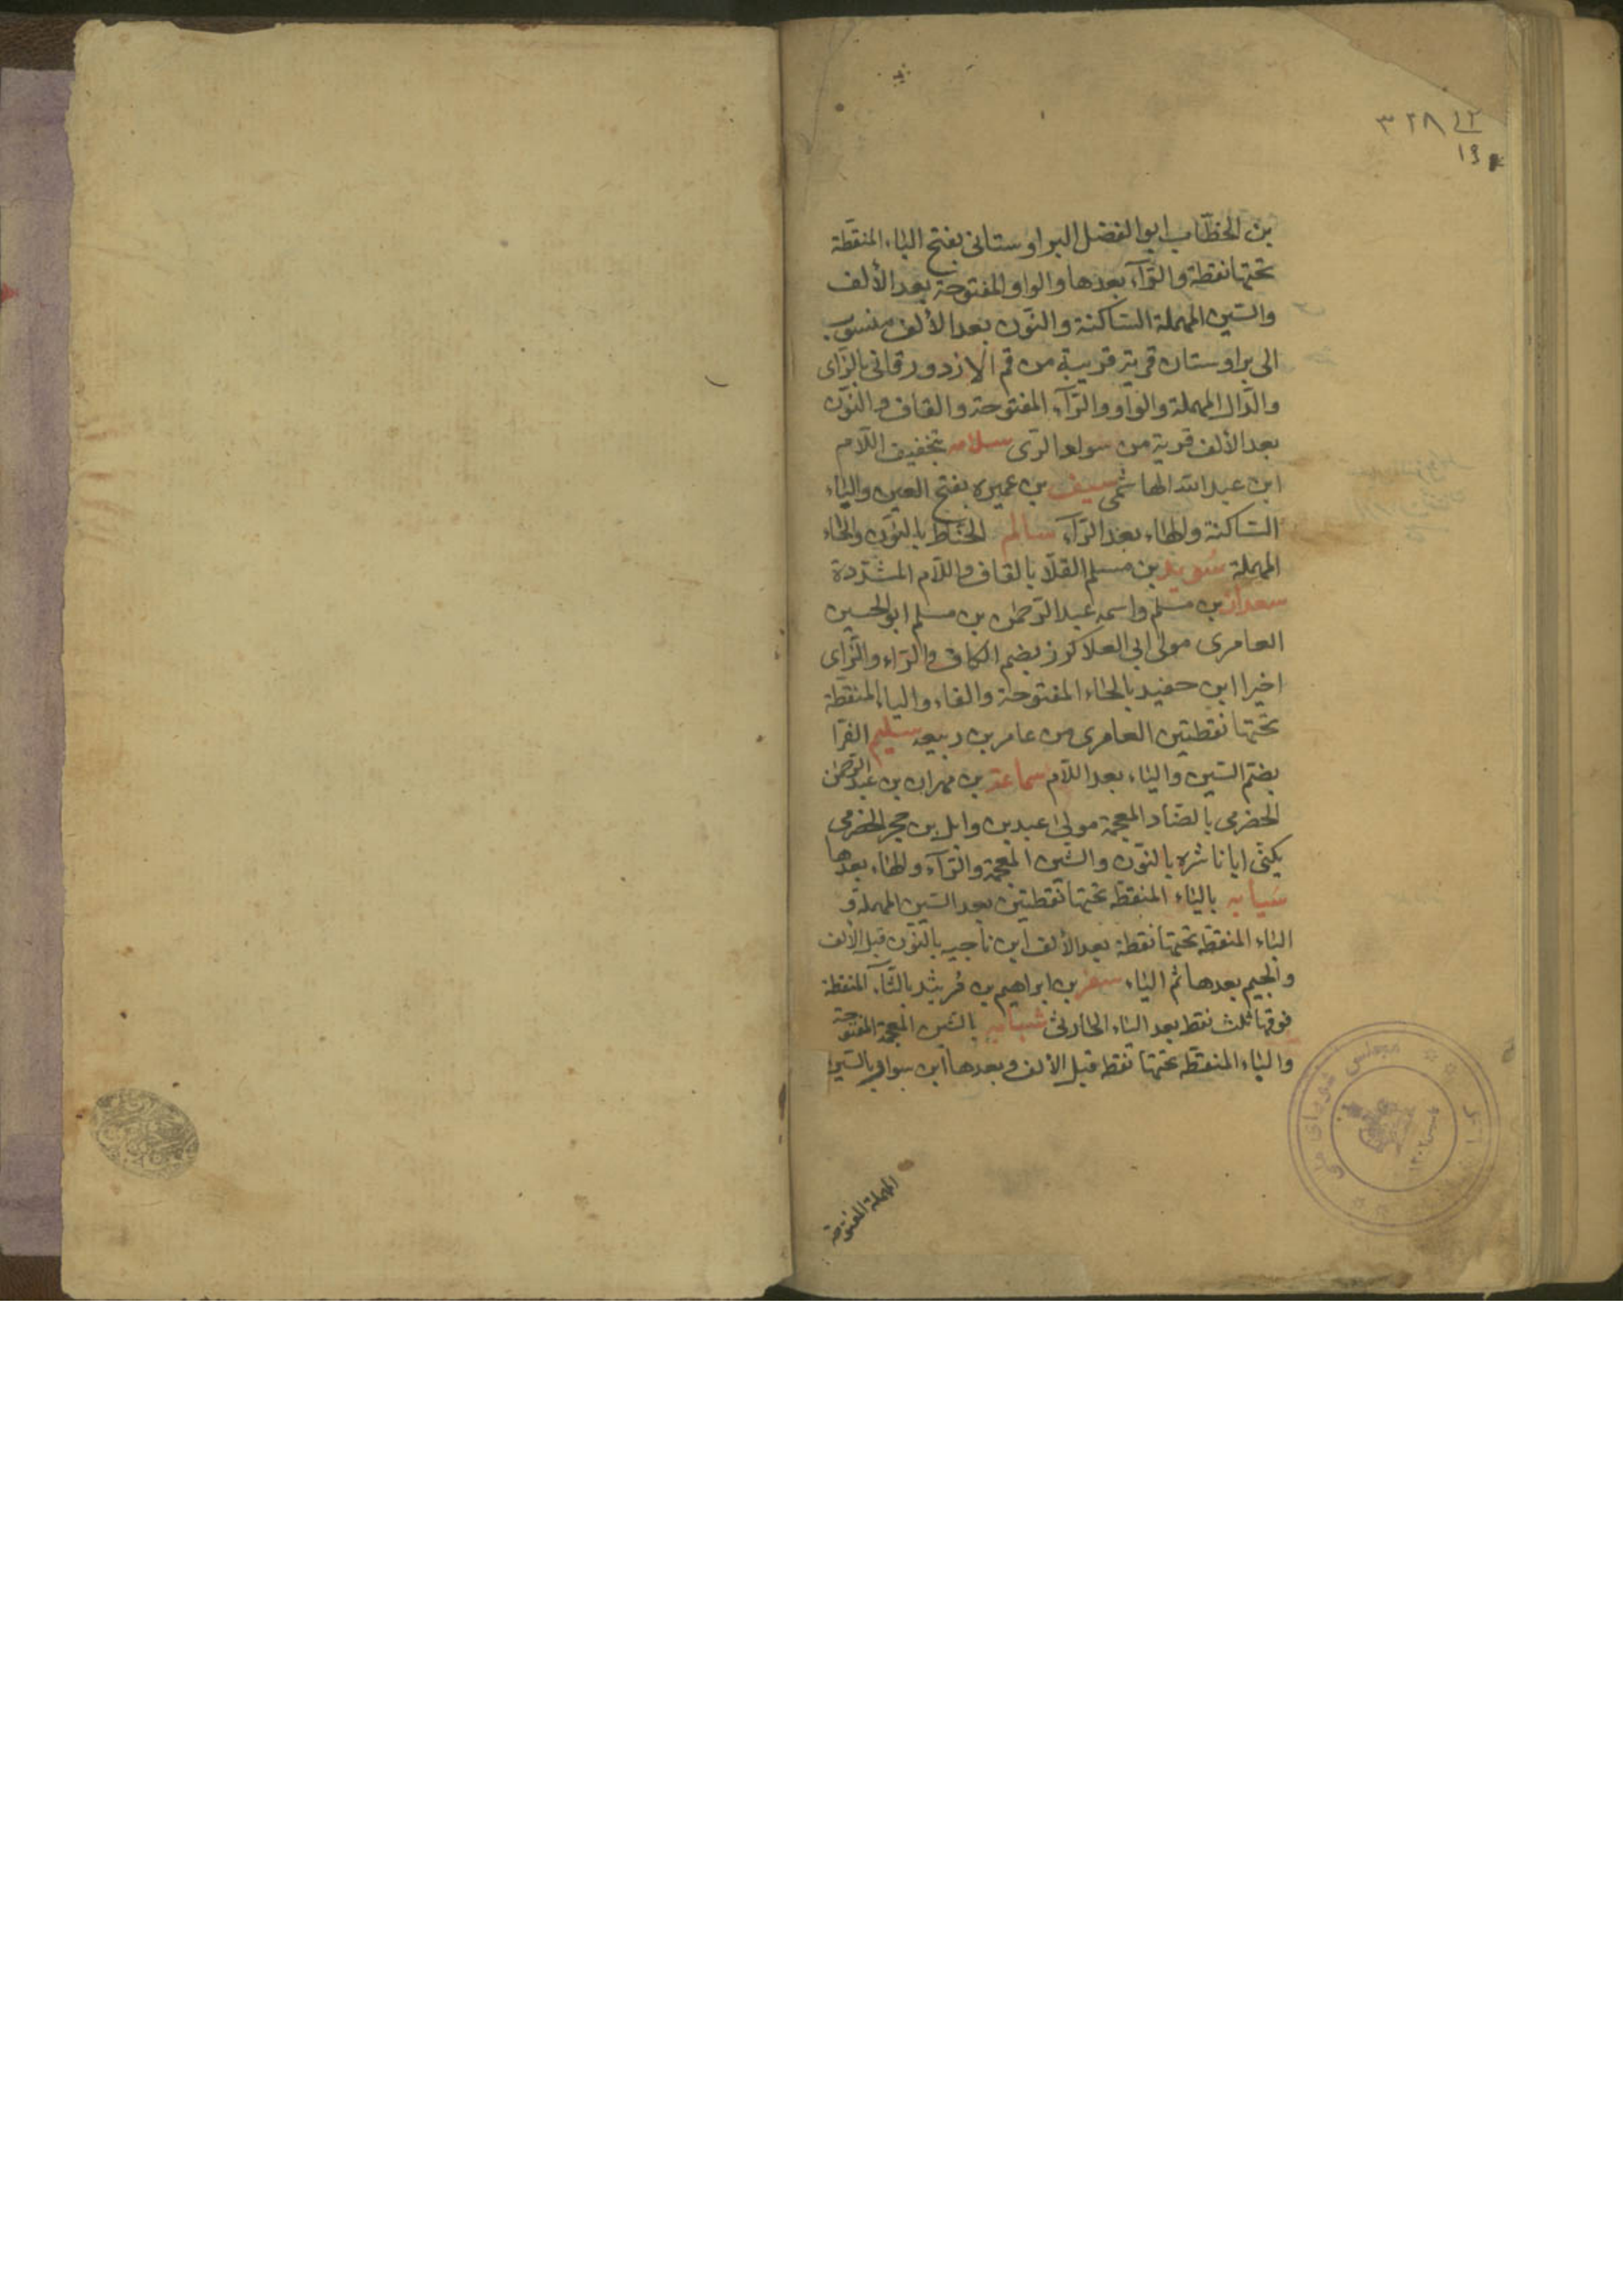 ٣٢٨ ١٢
١٩
بن الخطّاب ابو الفضل البراوستانى بفتح الباء المنقطة
تحتها نقطة والرّآء بعدها والواو المفتوحة بعد الألف
والسّين المهملة السّاكنة والنّون بعد الألف منسوب
الى براوستان قرية قريبة من قم الازدورقانى بالزّاى
والدّال المهملة والواو والرّآء المفتوحة والقاف والنّون
بعد الألف قرية من سواد الرّى سلامه بتخفيف اللّام
ابن عبد الله الهاشمى سيف بن عميره بفتح العين والياء
السّاكنة والهاء بعد الرّآء سالم الحنّاط بالنّون والحاء
المهملة سُويد بن مسلم القلّا بالقاف واللّام المشدّدة
سعدان بن مسلم واسمه عبد الرّحمن بن مسلم ابو الحسين
العامرى مولى ابى العلا كرز بضم الكاف والرّاء والزّاى
اخيرا ابن حفيد بالحاء المفتوحة والفاء والياء المنقطة
تحتها نقطتين العامرى من عامر بن ربيعه سليم الفرّا
بضمّ السّين والياء بعد اللّام سماعة بن مهران بن عبد الرّحمن
الحضرمى بالضّاد المعجمة مولى عبد بن وايل بن حجر الحضرمى
يكنّى ابا ناشره بالنّون والشّين المعجمة والرّآء والهاء بعدها
سَيابه بالياء المنقطة تحتها نقطتين بعد السّين المهملة و
الباء المنقطة تحتها نقطة بعد الألف ابن ناجيه بالنّون قبل الألف
والجيم بعدها ثم الياء سعر بن ابراهيم بن مُريثد بالثّآء المنقطة
فوقها ثلث نقط بعد الياء الحارثى شبابه بالشّين المعجمة المفتوحة
والباء المنقطة تحتها نقط قبل الألف وبعدها ابن سوار بالسّين
المهملة المفتوحة
مجلس شوراى ملى